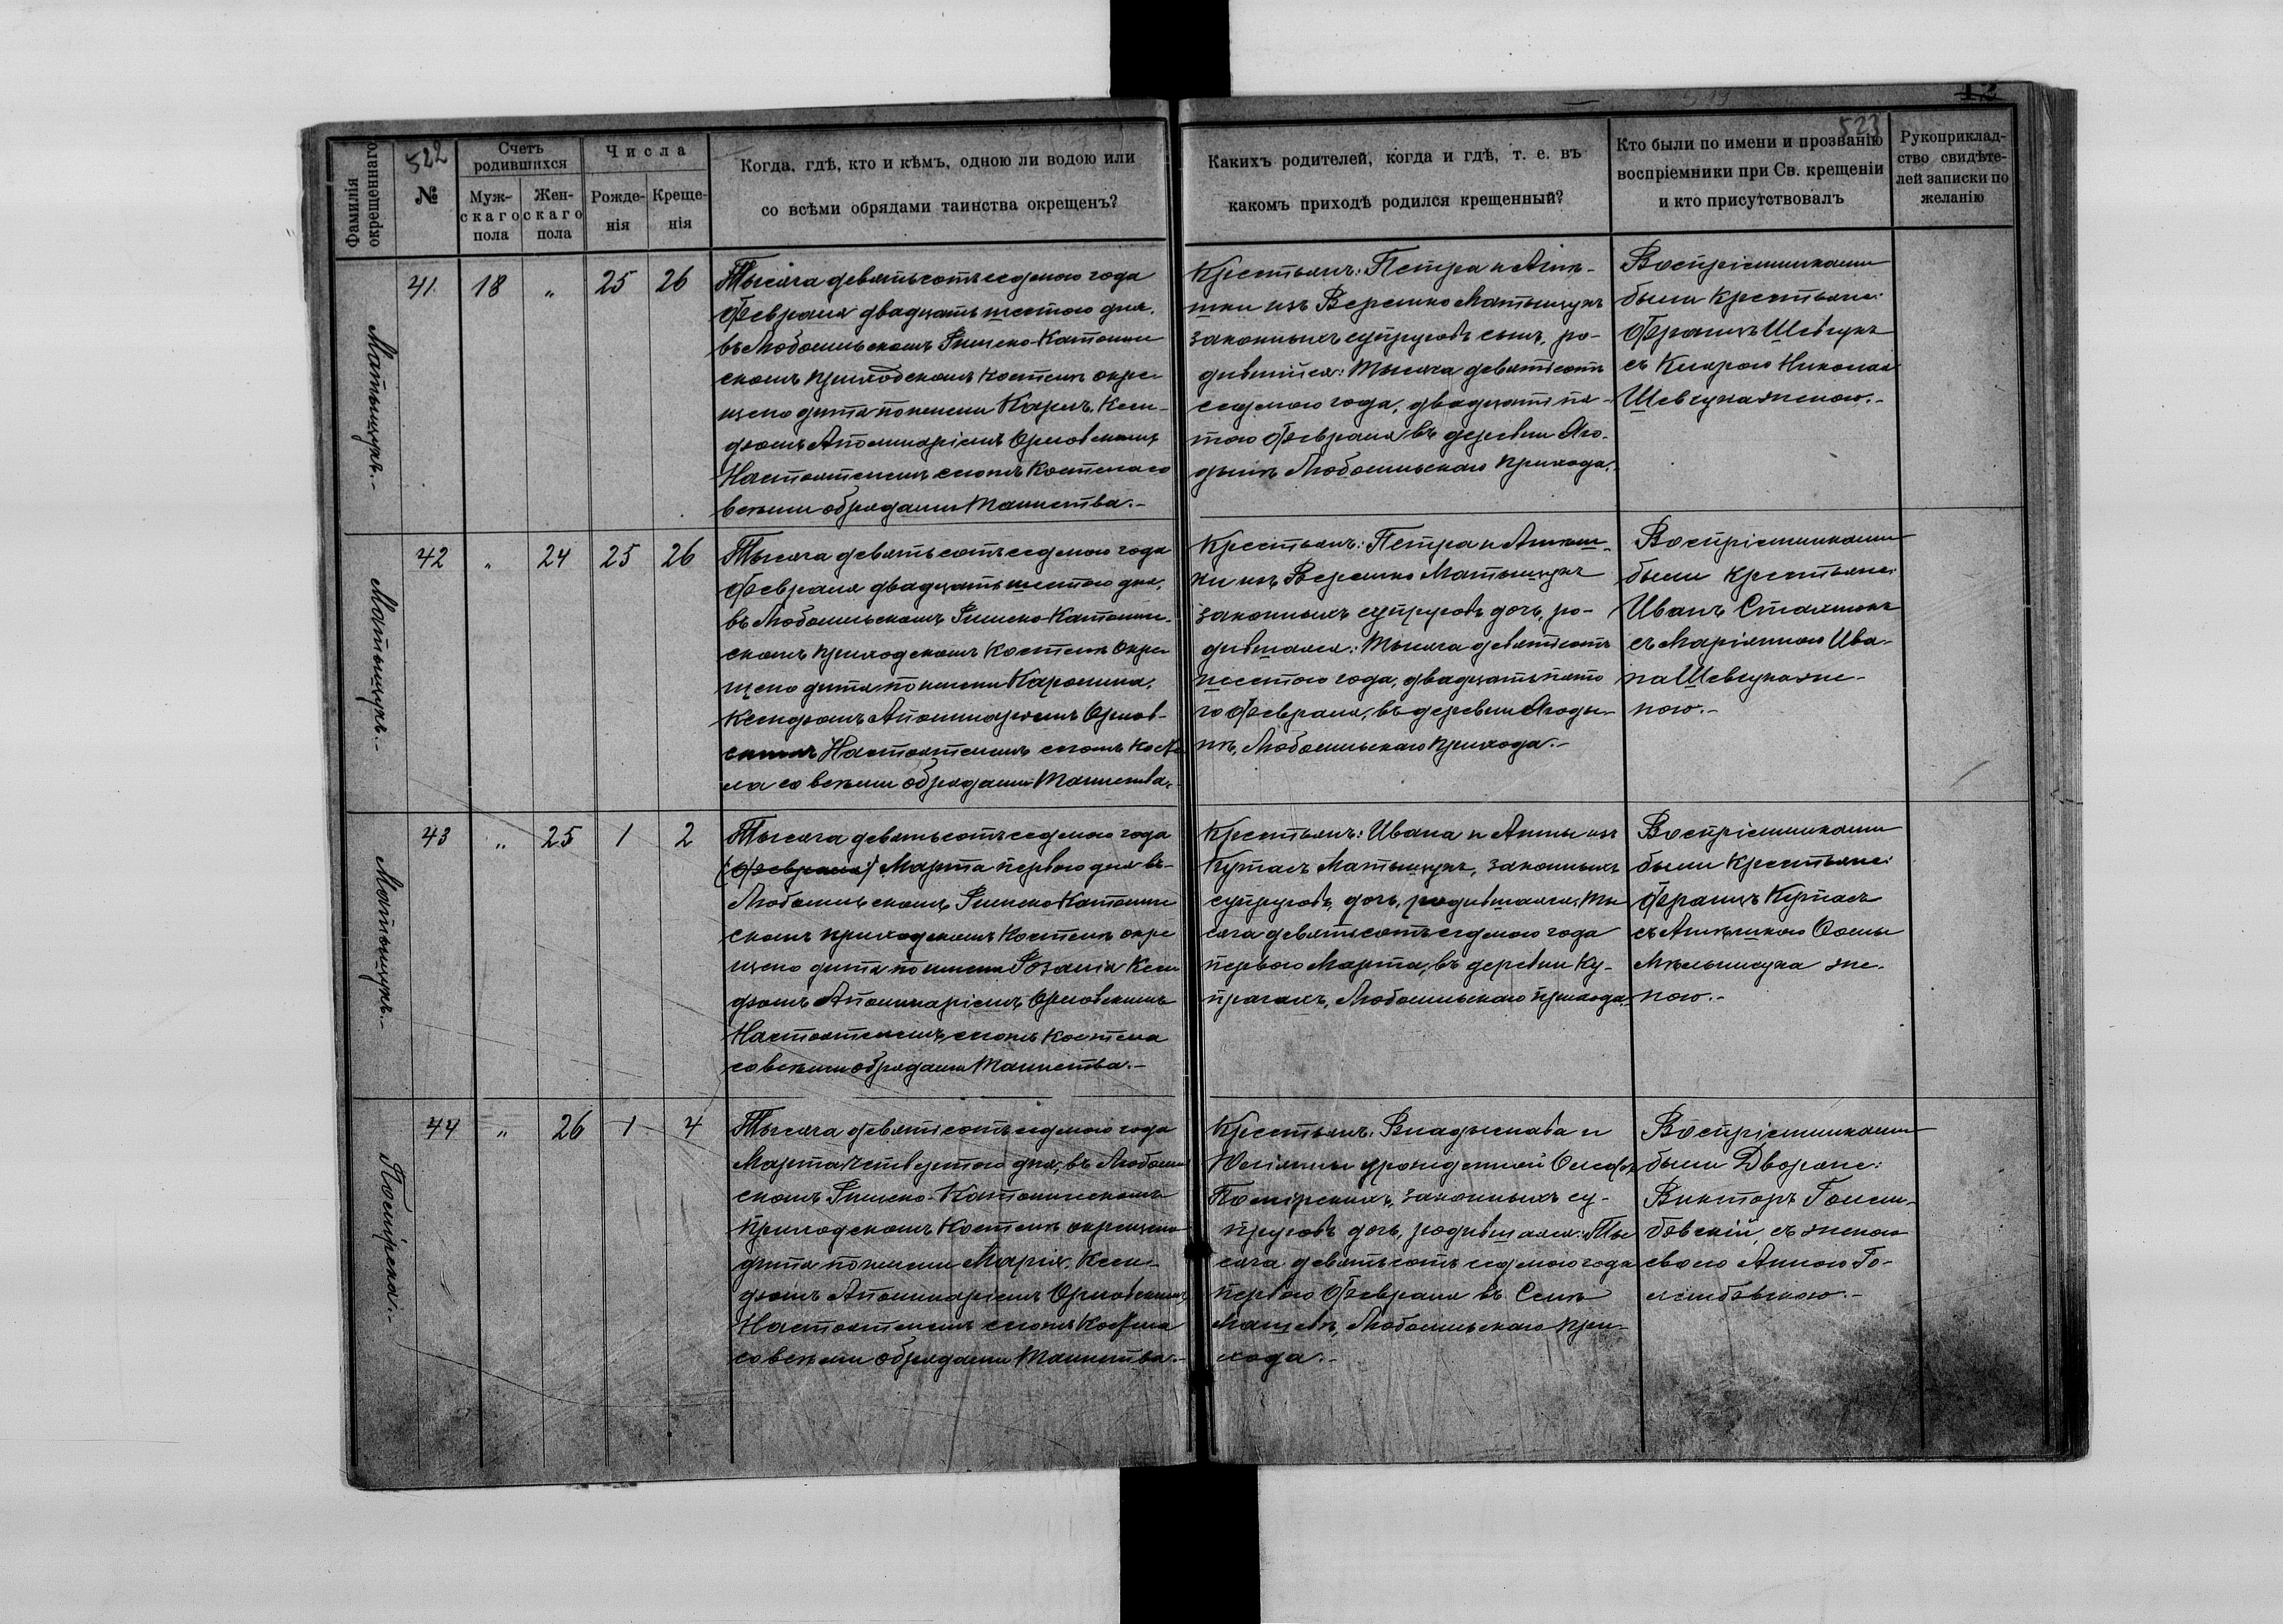 12
522
523
Фамилія окрещеннаго
№
Счетъ родившихся
Муж-
скаго
пола
Жен-
скаго
пола
Числа
Рожде-
нія
Креще-
нія
Когда, гдѣ, кто и кѣмъ, одною ли водою или
со всѣми обрядами таинства окрещенъ?
Какихъ родителей, когда и гдѣ, т. е. въ
какомъ приходѣ родился крещенный?
Кто были по имени и прозванію
воспріемники при Св. крещеніи
и кто присутствовалъ
Рукоприклад-
ство свидѣте-
лей записки по
желанію
Матыщукъ.-
41 18 „ 25 26
Тысяча девятьсотъ седмого года
Февраля двадцать шестого дня,
въ Любомльскомъ Римско-Католи
скомъ приходскомъ костелѣ окре-
щено дитя по имени Карлъ, Ксен-
дзомъ Аполинаріемъ Орловскимъ
Настоятелемъ сногъ Костела со
всѣми обрядами Таинства.-
Крестьянъ: Петра и Агнѣ-
шки изъ Веремко Матыщукъ
законныхъ супруговъ сынъ, ро-
дившійся: Тысяча девятьсотъ
седмого года, двадцать пя-
того Февраля, въ деревни Яго-
дынѣ Любомльскаго прихода.-
Воспріемниками
были крестьяне:
Францъ Шевчукъ
съ Кларою Николая
Шевчука женою.-
Матыщукъ.-
42 „ 24 25 26
Тысяча девятьсотъ седмого года
Февраля двадцать шестого дня,
въ Любомльскомъ Римско-Католи-
скомъ приходскомъ костелѣ окре-
щено дитя по имени Каролина,
Ксендзомъ Аполинаріемъ Орлов-
скимъ Настоятелемъ сногъ Косте
ла со всѣми обрядами Таинства.-
Крестьянъ: Петра и Агнѣш-
ки изъ Веремко Матыщукъ
законныхъ супруговъ дочь, ро-
дившаяся: Тысяча девятьсотъ
шестого года, двадцать пято
го Февраля, въ деревни Ягоды-
нѣ, Любомльскаго прихода.-
Воспріемниками
были крестьяне:
Иванъ Сталмокъ
съ Маріянною Ива-
на Шевчука же-
ною.-
Матыщукъ.-
43 „ 25 1 2
Тысяча девятьсотъ седмого года
(Февраля) Марта первого дня въ-
Любомльскомъ Римско-Католи
скомъ приходскомъ костелѣ окре
щено дитя по имени Розалія Ксен
дзомъ Аполинаріемъ Орловскимъ
Настоятелемъ, сногъ Костела
со всѣми обрядами Таинства.-
Крестьянъ: Ивана и Анны изъ
Кутасъ Матыщукъ, законныхъ
супруговъ, дочь, родившаяся: Ты
сяча девятьсотъ седмого года
первого Марта, въ деревни Ку-
трахъ, Любомльскаго прихода.-
Воспріемниками
были крестьяне:
Францъ Кутасъ
съ Агнѣшкою Фомы
Мѣльничука же-
ною.-
44 „ 26 1 4
Тысяча девятьсотъ седмого года
Марта четвертого дня, въ Любомль
скомъ Римско-Католическомъ
приходскомъ костелѣ окрещено
дитя по имени Марія, Ксен-
дзомъ Аполинаріемъ Орловскимъ
Настоятелемъ сногъ Костела
со всѣми обрядами Таинства.-
Крестьянъ: Владыслава и
Юліянны урожденной
законныхъ су-
пруговъ дочь, родившаяся: Ты
сяча девятьсотъ седмого года
первого Февраля въ Селѣ
Мащевѣ, Любомльскаго при-
хода.-
Воспріемниками
были Дворяне:
Викторъ Голем-
бовскій, съ женою
своею Анною Го-
лембовскою.-